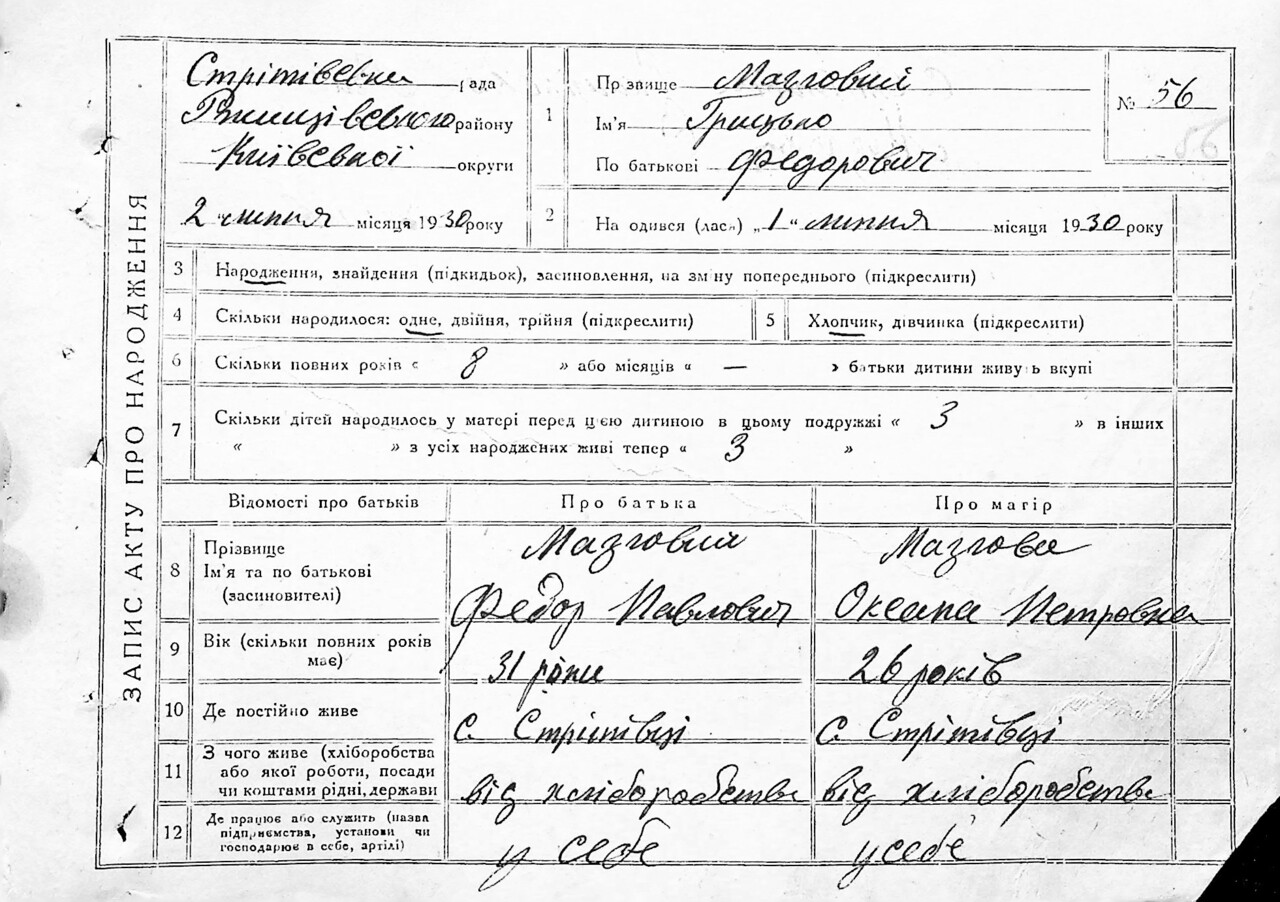 ЗАПИС АКТУ ПРО НАРОДЖЕННЯ
Стрітівська рада
Ржищівського району
Київської округи
2 „ липня місяця 1930 року
1 Пр звище Мазговий
Ім'я Грицько
По батькові Федорович
№ 56
2 На одився (лась) „ 1 “ липня місяця 1930 року
3 Народження, знайдення (підкидьок), засиновлення, на зм ну попереднього (підкреслити)
4 Скільки народилося: одне, двійня, трійня (підкреслити)
5 Хлопчик, дівчинка (підкреслити)
6 Скільки повних років « 8 » або місяців « — » батьки дитини живуть вкупі
7 Скільки дітей народилось у матері перед цією дитиною в цьому подружжі « 3 » в інших
« » з усіх народжених живі тепер « 3 »
Відомості про батьків Про батька Про матір
8 Прізвище Мазговий Мазгова
Ім'я та по батькові
(засиновителі) Федор Павлович Оксана Петровна
9 Вік (скільки повних років
має) 31 роки 26 років
10 Де постійно живе с. Стрітівці с. Стрітівці
11 З чого живе (хліборобства
або якої роботи, посади
чи коштами рідні, держави від хліборобства від хліборобства
12 Де працює або служить (назва
підприємства, установи чи
господарює в себе, артілі) у себе у себе